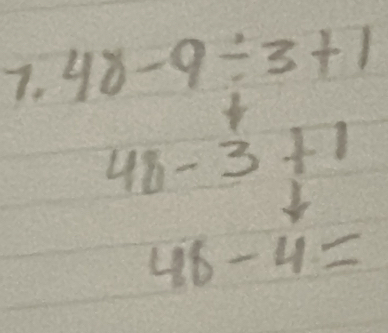 7. 48 - 9 ÷ 3 + 1
↓
48 - 3 + 1
↓
48 - 4 =